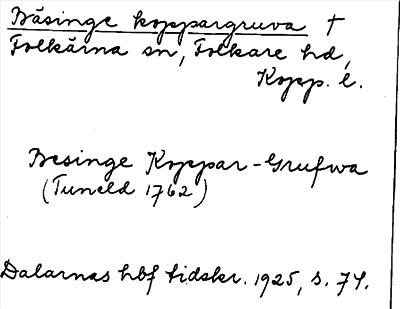 Bäsinge koppargruva †
Folkärna sn, Folkare hd,
Kopp. l.
Besinge Koppar-Grufwa
(Tuneld 1762)
Dalarnas hbf tidskr. 1925, s. 74.